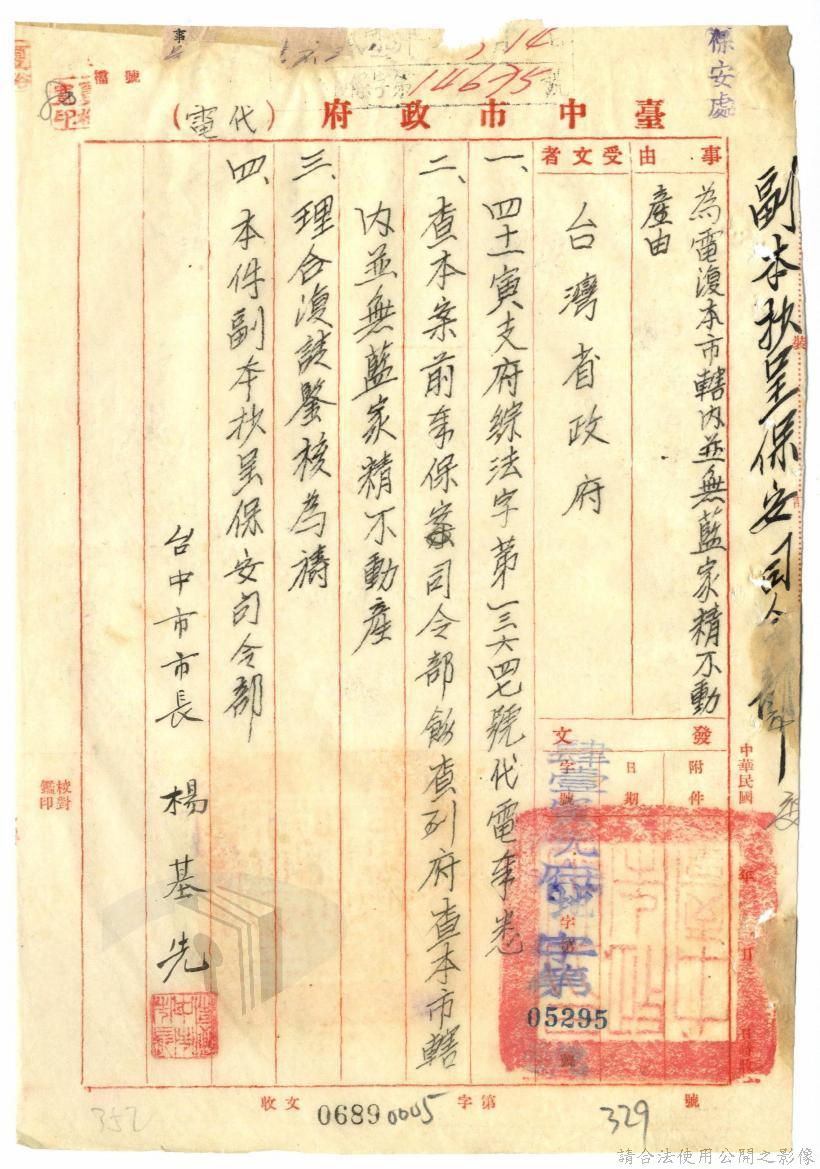 保安處
14675
檔 號
臺中市政府(代電)
副本抄呈保安司令部
事由
為電復本市轄內並無藍家精不動
產由
受文者
台灣省政府
發文
附件
日期
字號
字第
05295
號
中華民國
年
月
一、四十一寅支府綜法字第一三六四七號代電奉悉
二、查本案前奉保安司令部飭查到府查本市轄
內並無藍家精不動產
三、理合復請鑒核為禱
四、本件副本抄呈保安司令部
台中市市長 楊基先
校對
鑑印
收文 字第 號
0689 0005
329
352
請合法使用公開之影像